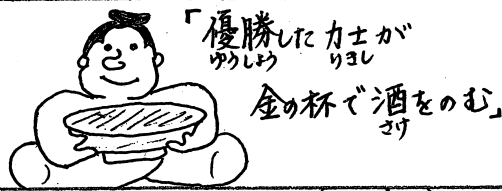 「優勝した力士が
ゆうしょう りきし
金の杯で酒をのむ」
さけ